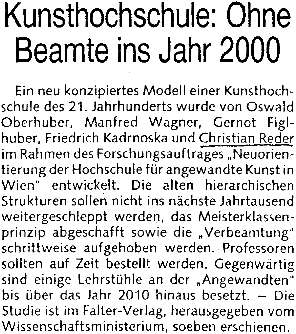 Kunsthochschule: Ohne
Beamte ins Jahr 2000
Ein neu konzipiertes Modell einer Kunsthoch-
schule des 21. Jahrhunderts wurde von Oswald
Oberhuber, Manfred Wagner, Gernot Figl-
huber, Friedrich Kadrnoska und Christian Reder
im Rahmen des Forschungsauftrages „Neuorien-
tierung der Hochschule für angewandte Kunst in
Wien" entwickelt. Die alten hierarchischen
Strukturen sollen nicht ins nächste Jahrtausend
weitergeschleppt werden, das Meisterklassen-
prinzip abgeschafft sowie die „Verbeamtung"
schrittweise aufgehoben werden. Professoren
sollten auf Zeit bestellt werden. Gegenwärtig
sind einige Lehrstühle an der „Angewandten"
bis über das Jahr 2010 hinaus besetzt. – Die
Studie ist im Falter-Verlag, herausgegeben vom
Wissenschaftsministerium, soeben erschienen.